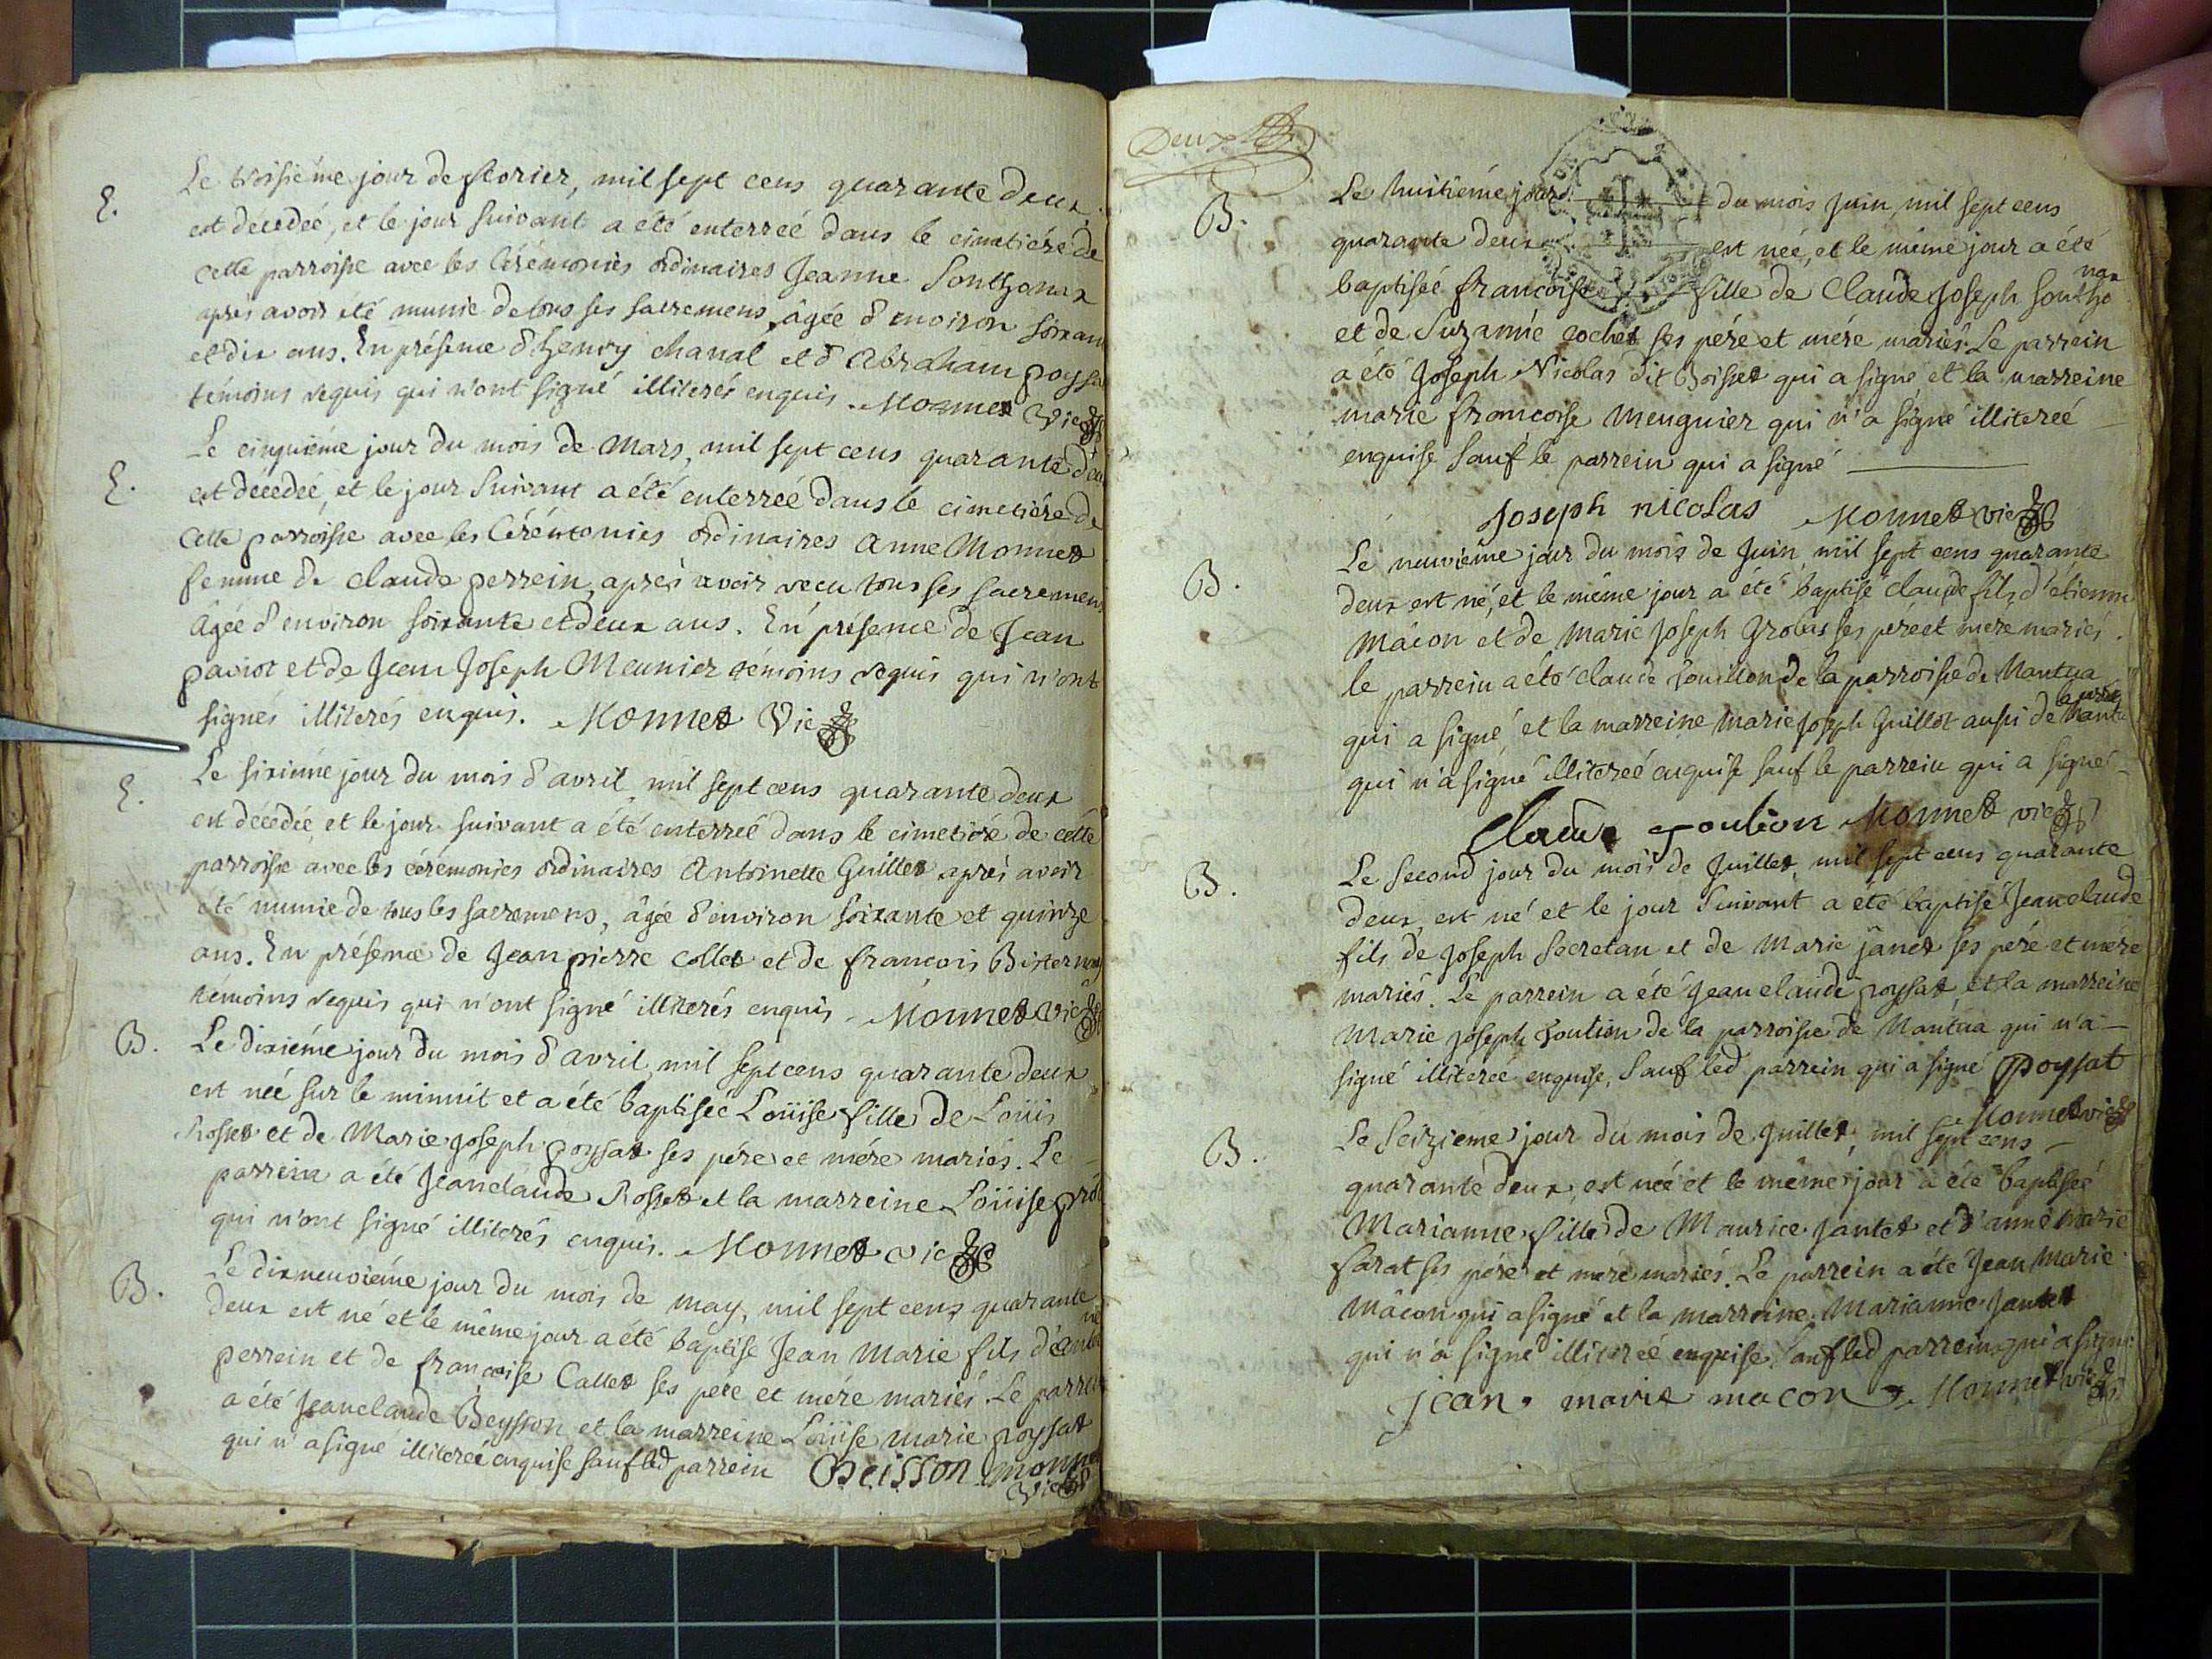 E.
Le troisiéme jour de fevrier, mil sept cens quarante deux
est decedeé, et le jour suivant a été enterreé dans le cimetiére de
cette parroisse avec les Cérémonies ordinaires Jeanne Sonthonax
aprés avoir été munie de tous ses sacremens, âgée d'environ soixan
et dix ans. En présence d'henry chanal et d'Abraham poysa
témoins requis qui n'ont signé illiterés enquis. Monnet Vic
E.
Le cinquiéme jour du mois de Mars, mil sept cens quarante deu
est décedeé, et le jour suivant a été enterreé dans le cimetiére de
cette parroisse avec les Cérémonies ordinaires Anne Monnet
femme de claude perrein, aprés avoir recu tous ses sacremens
âgée d'environ soixante et deux ans. En présence de Jean
paviot et de Jean Joseph Meunier témoins requis qui n'ont
signés illiterés enquis. Monnet Vic
E.
Le sixiéme jour du mois d'avril mil sept cens quarante deux
est décedée et le jour suivant a été enterreé dans le cimetiére de cette
parroisse avec les cérémonies ordinaires Antoinette Guillet aprés avoir
été munie de tous les sacremens, âgée d'environ soixante et quinze
ans. En présence de Jean pierre collet et de francois
témoins requis qui n'ont signé illiterés enquis. Monnet Vic
B.
Le dixiéme jour du mois d'avril, mil sept cens quarante deux
est née sur le minuit et a été baptiseé Loüise fille de Loüis
Rosset et de Marie Joseph poysat ses pére et mére mariés. Le
parrein a été Jeanclaude Rosset et la marreine Loüise
qui n'ont signé illiterés enquis. Monnet vic
B.
Le dixneuviéme jour du mois de may, mil sept cens quarante
deux est né et le même jour a été baptisé Jean Marie fils d'
perrein et de francoise Callet ses pére et mére mariés. Le parrein
a été Jeanclaude Beysson et la marreine Loüise marie poysat
qui n'a signé illitereé enquise sauf led parrein Beisson monnet
Vic
Deux
B.
Le huitiéme jour du mois Juin, mil sept cens
quarante deux est née, et le même jour a été
baptiseé francoise fille de Claude Joseph Sontho
nax
et de Suzanne cochet ses pére et mére mariés. Le parrein
a été Joseph Nicolas dit Boisset qui a signé et la marreine
marie francoise Meugnier qui n'a signé illitereé
enquise sauf le parrein qui a signé
Joseph nicolas Monnet vic
B.
Le neuviéme jour du mois de Juin mil sept cens quarante
deux est né, et le même jour a été baptisé claude fils d'étienne
Mâcon et de Marie Joseph Grobas ses pére et mere mariés.
le parrein a été claude de la parroisse de Nantua
qui a signé et la marreine Marie Joseph Guillot aussi de
qui n'a signé illitereé enquise sauf le parrein qui a signé
Claude goulion Monnet vic
B.
Le second jour du mois de Juillet, mil sept cens quarante
deux, est né et le jour suivant a été baptisé Jeanclaude
fils de Joseph Secretan et de Marie jânet ses pére et mére
mariés. Le parrein a été Jeanclaude poysat et la marreine
Marie Joseph de la parroisse de Nantua qui n'a
signé illitereé enquise, sauf led parrein qui a signé poysat
Monnet vic
B.
Le seizieme jour du mois de Juillet, mil sept cens
quarante deux, est née et le même jour a été baptiseé
Marianne fille de Maurice Jantet et d'anne marie
ses pére et mére mariés. Le parrein a été Jean Marie
Mâcon qui a signé et la marreine Marianne Jantet
qui n'a signé illitereé enquise, sauf led parrein qui a signé
jean marie macon Monnet vic